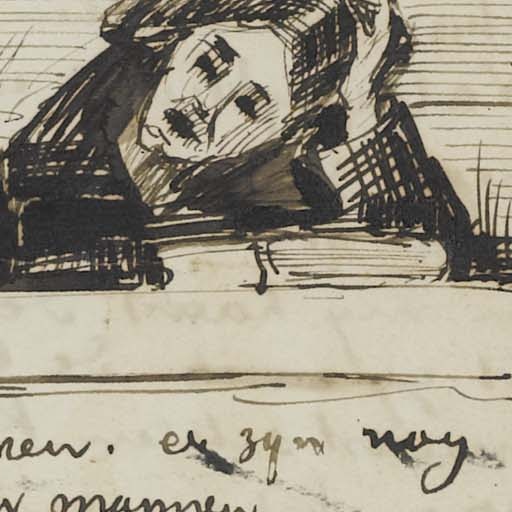 ren. er zyn nog
r mannen